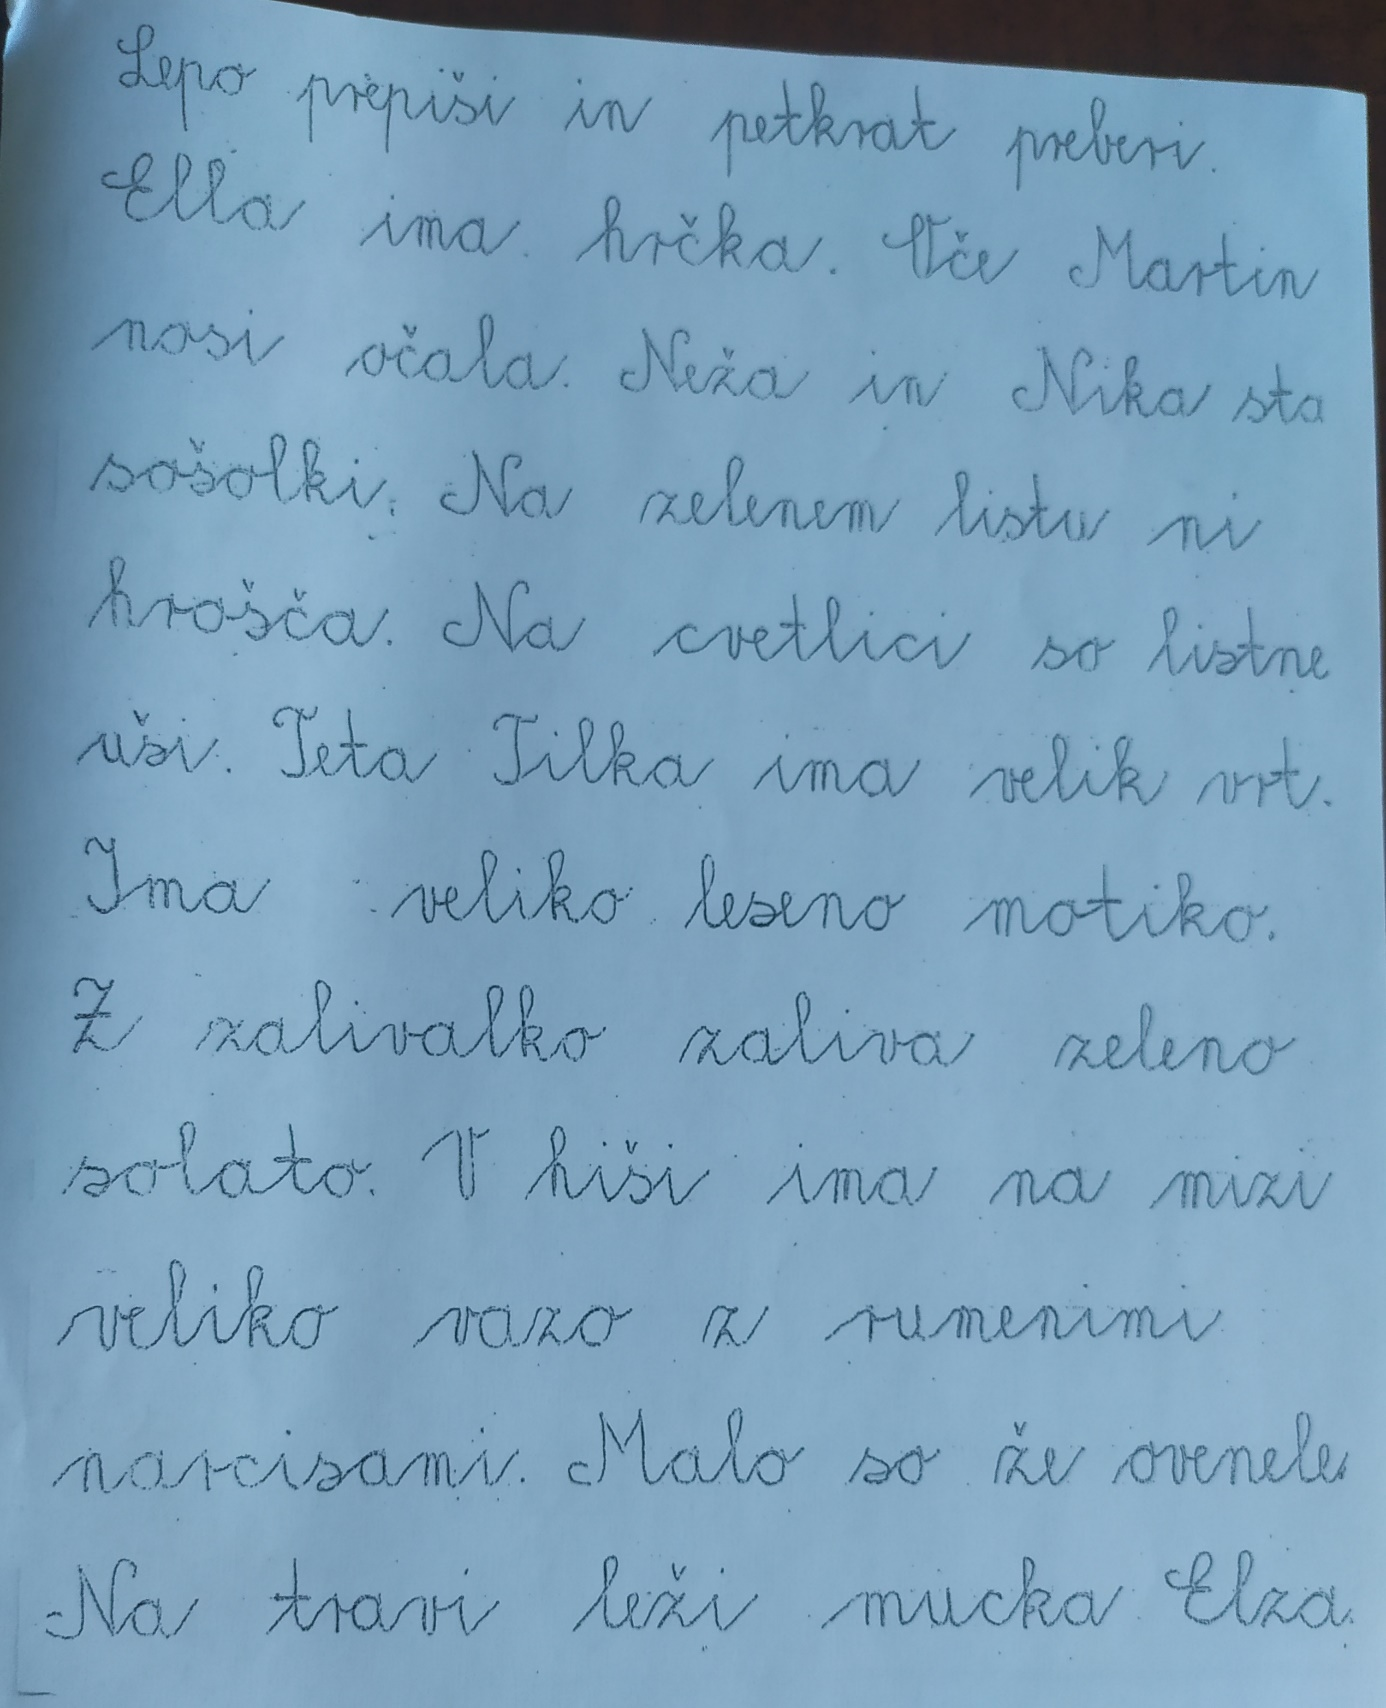 Lepo prepiši in petkrat preberi.
Ella ima hrčka. Vče Martin
nosi očala. Neža in Nika sta
sošolki. Na zelenem listu ni
hrošča. Na cvetlici so listne
uši. Teta Tilka ima velik vrt.
Ima veliko leseno motiko.
Z zalivalko zaliva zeleno
solato. V hiši ima na mizi
veliko vazo z rumenimi
narcisami. Malo so že ovenele.
Na travi leži mucka Elza.